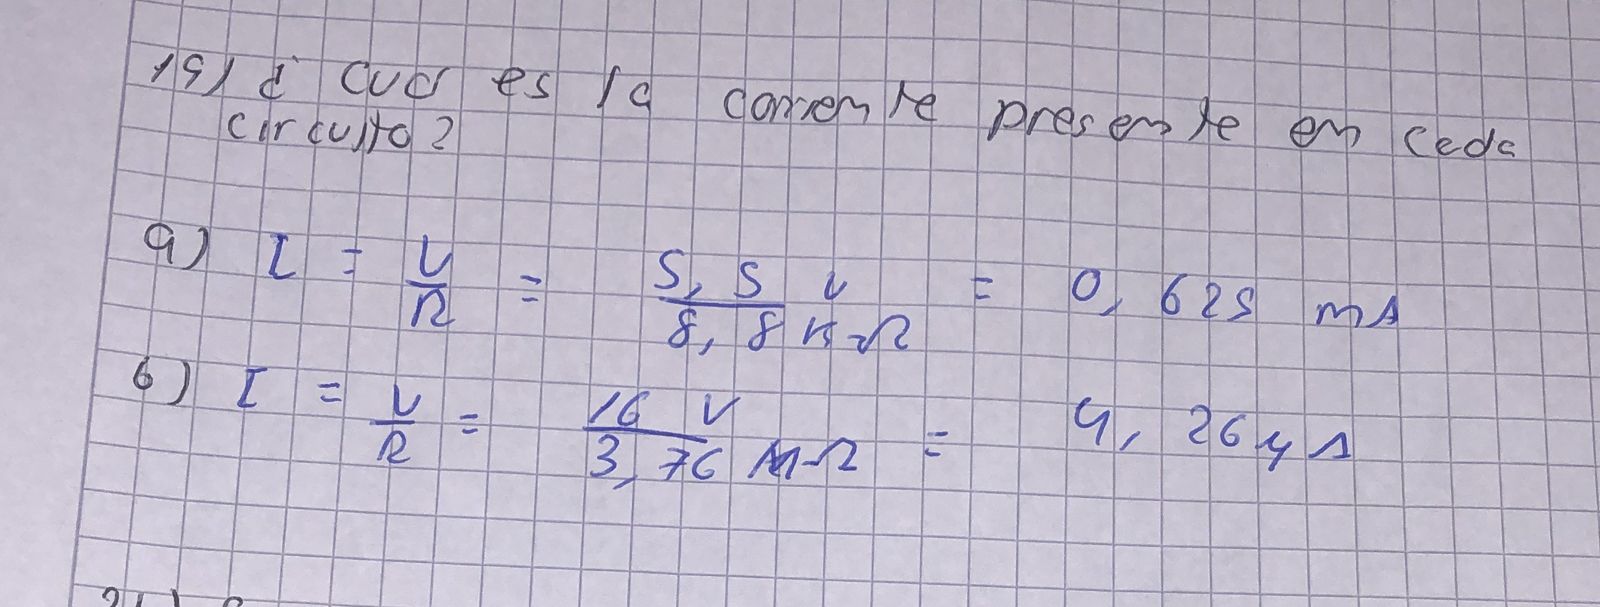 19) ¿ Cual es la corriente presente en cada
circuito?
a) I = V/R = 5,5 V / 8,8 KΩ = 0,625 mA
b) I = V/R = 16 V / 3,76 MΩ = 4,26 μA